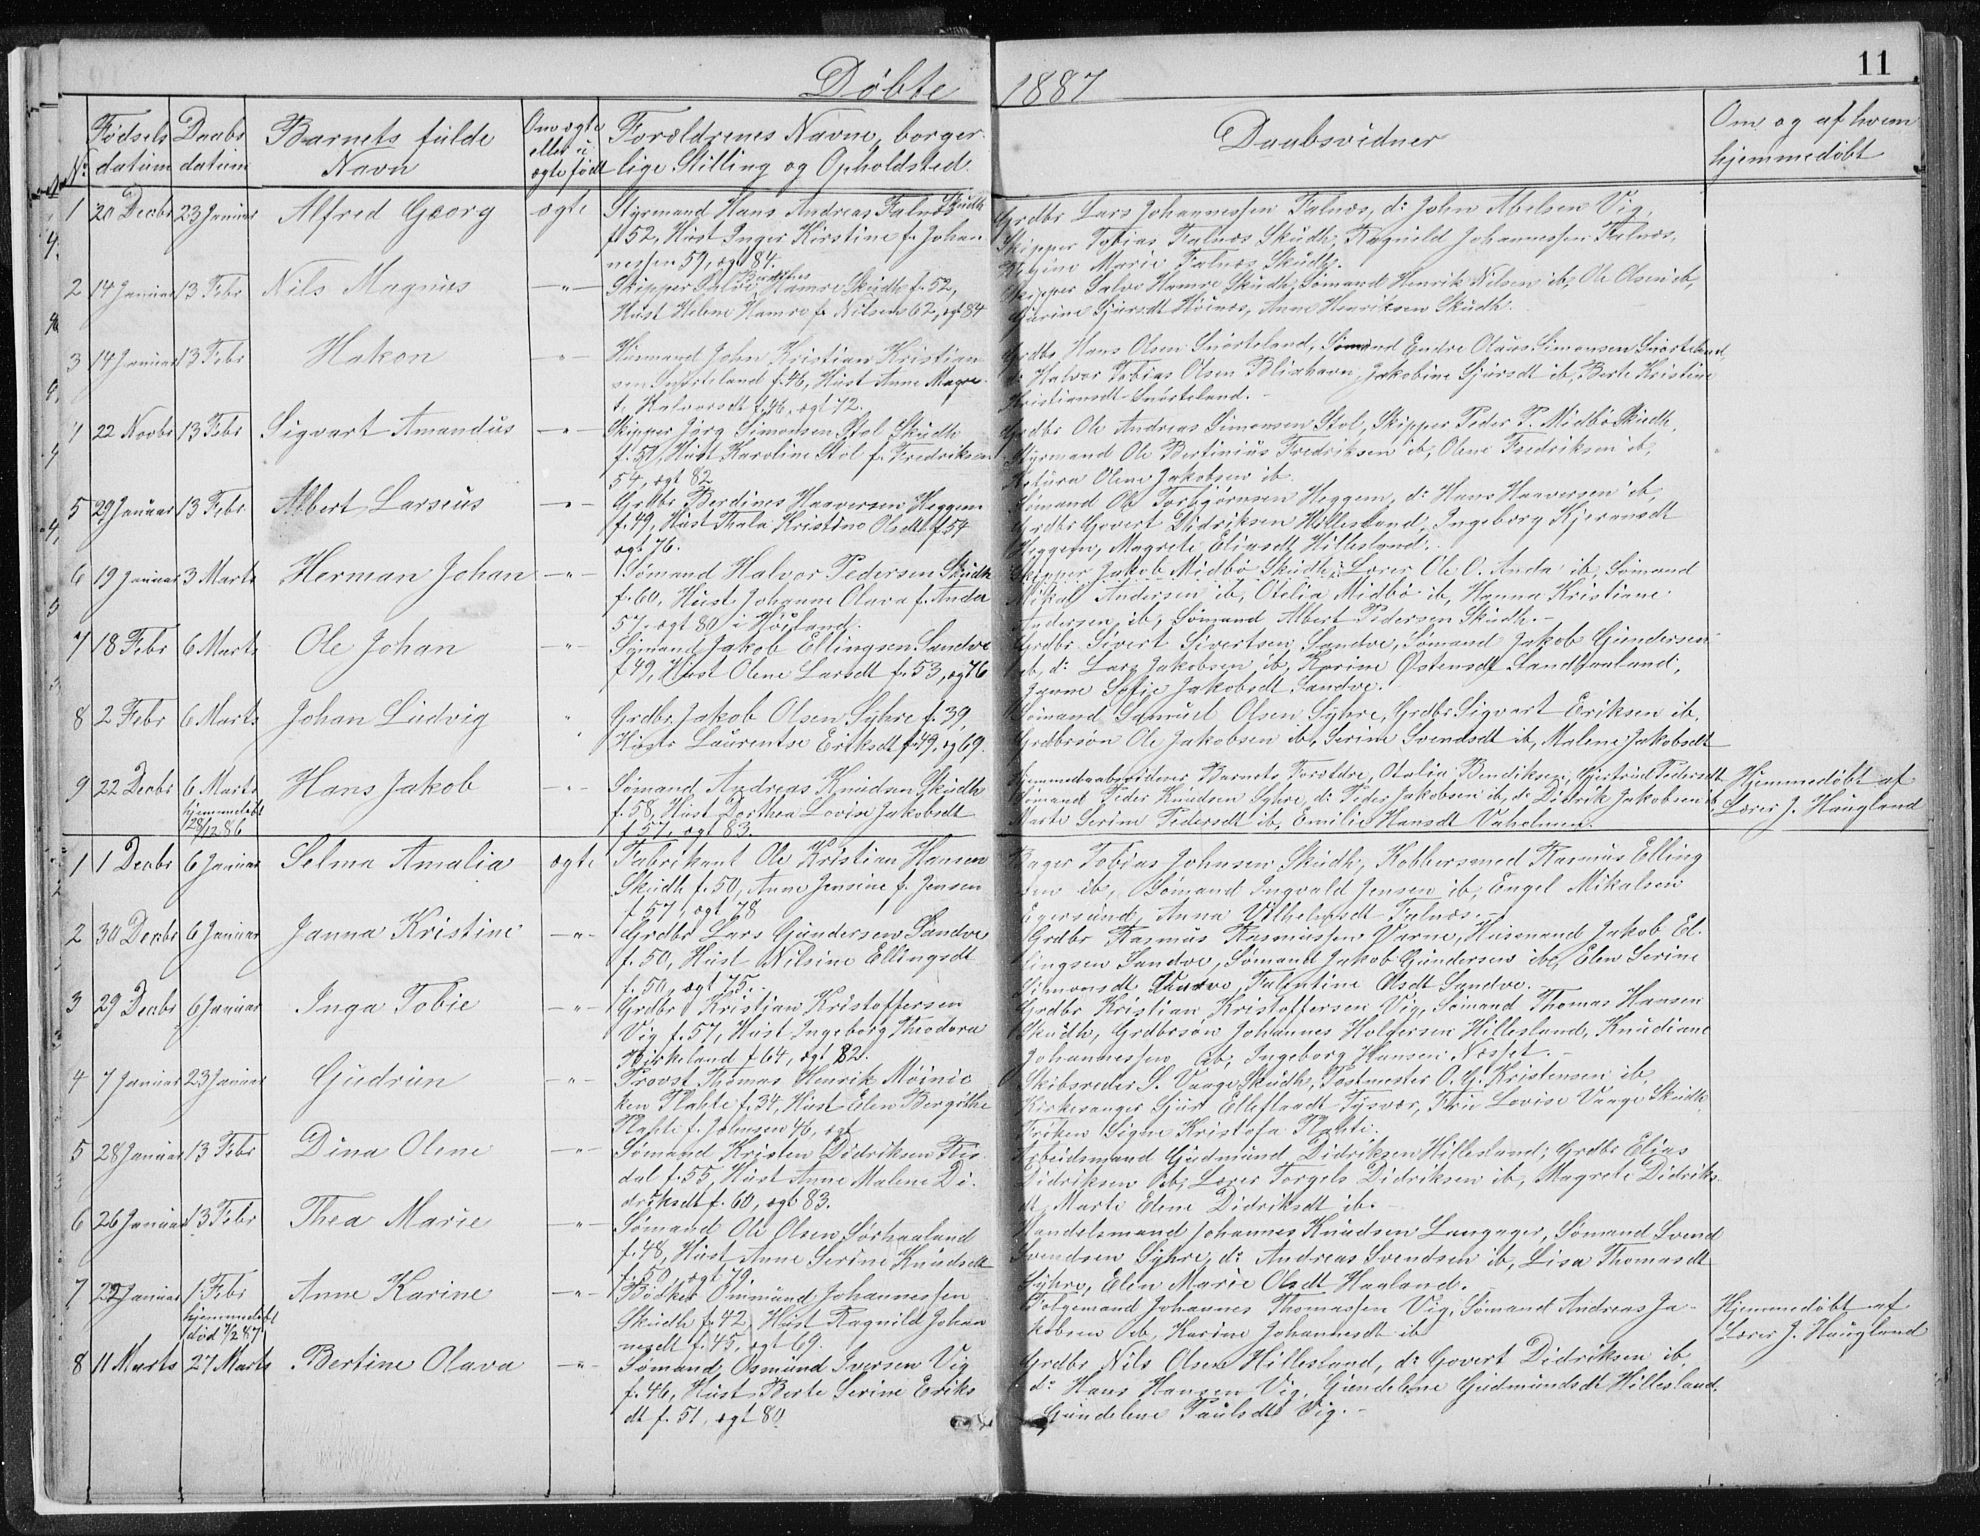 11
Døbte 1887
No
Fødsels datum
Daabs datum
Barnets fulde Navn
Om ægte eller u ægte født
Forældrenes Navne, borger-
lige Stilling og Opholdsted.
Daabsvidner
Om og af hvem hjemmedøbt
1 20 Decbr 23 Januar Alfred Georg ægte
Styrmand Hans Andreas Falnæs Skudh
f. 52, Hust Inger Kirstine f. Johan
nessen 59, ægt 84.
Grdbr Lars Johannessen Falnæs, do John Abelsen Vig,
Skipper Tobias Falnæs Skudh, Ragnild Johannessen Falnæs,
Marie Falnæs Skudh.
2 14 Januar 13 Febr Nils Magnus -"-
Skipper Salve Hamre Skudh f. 52,
Hust Helene Hamre f. Nilsen 62, ægt 84
Skipper Salve Hamre Skudh, Sømand Henrik Nilsen ib, Ole Olsen ib,
Gurine Sjursdt Høinæs, Anne Henriksen Skudh.
3 14 Januar 13 Febr Hakon -"-
Husmand John Kristian Kristian
sen Snørteland f. 46, Hust Anne Magre-
te Halvorsdt f. 46, ægt 72.
Grdbr Hans Olsen Snørteland, Sømand Endre Olaus Simonsen Snørteland,
do Halvor Tobias Olsen Blixhavn, Jakobine Sjursdt ib, Berte Kristine
Kristiansdt Snørteland.-
4 22 Novbr 13 Febr Sigvart Amandus -"-
Skipper Jørg Simonsen Stol Skudh
f. 51, Hust Karoline Stol f. Fredriksen
54, ægt 82
Grdbr Ole Andreas Simonsen Stol, Skipper Peder P. Midbø Skudh,
Styrmand Ole Bertinius Fredriksen ib, Olene Fredriksen ib,
Ketura Olene Jakobsen ib.
5 29 Januar 13 Febr Albert Larsius -"-
Grdbr Berdines Haaversen Heggem
f. 49, Hust Thala Kristine Olsdt f. 54
ægt 76.
Sømand Ole Torbjørnsen Heggem, do Hans Haaversen ib,
Grdbr Govert Didriksen Hillesland, Ingeborg Kjeransdt
Heggem, Magrete Eliasdt Hillesland.
6 19 Januar 3 Marts Herman Johan -"-
Sømand Halvor Pedersen Skudh
f. 60, Hust Johanne Olava f. Ander
57, ægt 80, i Høiland.
Skipper Jakob Midbø Skudh, Lærer Ole O. Anda ib, Sømand
Mikal Andersen ib, Otelia Midbø ib, Hanna Kristiane
Andersen ib, Sømand Albert Pedersen Skudh.-
7 18 Febr 6 Marts Ole Johan -"-
Sømand Jakob Ellingsen Sandve
f. 49, Hust Olene Larsdt f. 53, ægt 76
Grdbr Sivert Sivertsen Sandve, Sømand Jakob Gundersen
ib, do Lars Jakobsen ib, Karine Østensdt Sandhaaland,
Janne Sofie Jakobsdt Sandve.
8 2 Febr 6 Marts Johan Ludvig "
Grdbr Jakob Olsen Syhre f. 39,
Hustr Laurentse Eriksdt f. 49, ægt 69.
Sømand Samuel Olsen Syhre, Grdbr Sigvart Eriksen ib,
Grdbrsøn Ole Jakobsen ib, Serine Svendsdt ib, Malene Jakobsdt
9 22 Decbr 6 Marts hjemmedøbt 28/12 86 Hans Jakob -"-
Sømand Andreas Knudsen Skudh
f. 58, Hust Dorthea Lovise Jakobsdt
f. 57, ægt 83.
Hjemmedaabsvidner Barnets Forældre, Otalia Bendiksen, Gjertrud Pedersdt
Sømand Peder Knudsen Syhre, do Peder Jakobsen ib, do Didrik Jakobsen ib,
Marte Serine Pedersdt ib, Emilie Hansdt
Hjemmedøbt af
Lærer J. Haugland
1 1 Decbr 6 Januar Selma Amalia ægte
Fabrikant Ole Kristian Hansen
Skudh f. 50, Anne Jensine f. Jensen
f. 57, ægt 78
Bager Tobias Johnsen Skudh, Kobbersmed Rasmus Elling
sen ib, Sømand Ingvald Jensen ib, Engel Mikalsen
Egersund, Anna Vilhelmsdt Falnæs.-
2 30 Decbr 6 Januar Janna Kristine -"-
Grdbr Lars Gundersen Sandve
f. 50, Hust Nilsine Ellingsdt
f. 50, ægt 75.-
Grdbr Rasmus Rasmussen Varne, Husmand Jakob El-
lingsen Sandve, Sømand Jakob Gundersen ib, Elen Serine
Simonsdt Sandve, Falentine Olsdt Sandve.
3 29 Decbr 6 Januar Inga Tobie -"-
Grdbr Kristian Kristoffersen
Vig f. 57, Hust Ingeborg Theodora
Birkeland f. 64, ægt 82.
Grdbr Kristian Kristoffersen Vig, Sømand Thomas Hansen
Skudh, Grdbrsøn Johannes Holgersen Hillesland, Knudiane
Johannessen ib, Ingeborg Hansen Næsset.-
4 7 Januar 23 Januar Gudrun -"-
Provst Thomas Henrik Møinic
ken Plahte f. 34, Hust Elen Bergithe
Plahte f. Johnsen 46, ægt
Skibsreder S. Vaage Skudh, Postmester O. G. Kristensen ib,
Kirkesanger Sjur Tysvær, Fru Lovise Vaage Skudh,
Frøken Signe Kristofa Plahte.
5 28 Januar 13 Febr Dina Olene -"-
Sømand Kristen Didriksen
dal f. 55, Hust Anne Malene Di-
driksdt f. 60, ægt 83.
Arbeidsmand Gudmund Didriksen Hillesland, Grdbr Elias
Didriksen ib, Lærer Torgels Didriksen ib, Magrete Didriks-
dt, Marte Elene Didriksdt ib.-
6 26 Januar 13 Febr Thea Marie -"-
Sømand Ole Olsen Sørhaaland
f. 48, Hust Anne Serine Knudsdt
f. 50, ægt 79
Handelsmand Johannes Knudsen Langager, Sømand Svend
Svendsen Syhre, do Andreas Svendsen ib, Lisa Thomasdt
Syhre, Elen Marie Olsdt Haaland.
7 22 Januar 1 Febr hjemmedøbt død 7/2 87 Anne Karine -"-
Bødker Omund Johannessen
Skudh f. 42, Hust Ragnild Johan
nesdt f. 45, ægt 69.
Johannes Thomassen Vig, Sømand Andreas Ja-
kobsen ib, Karine Johannesdt ib
Hjemmedøbt af
Lærer J. Haugland
8 11 Marts 27 Marts Bertine Olava -"-
Sømand Osmund Iversen Vig
f. 46, Hust Berte Serine Eriks
dt f. 51, ægt 80.
Grdbr Nils Olsen Hillesland, do Govert Didriksen ib,
do Hans Hansen Vig, Gundelene Gudmundsdt Hillesland,
Gundelene Paulsdt Vig.-